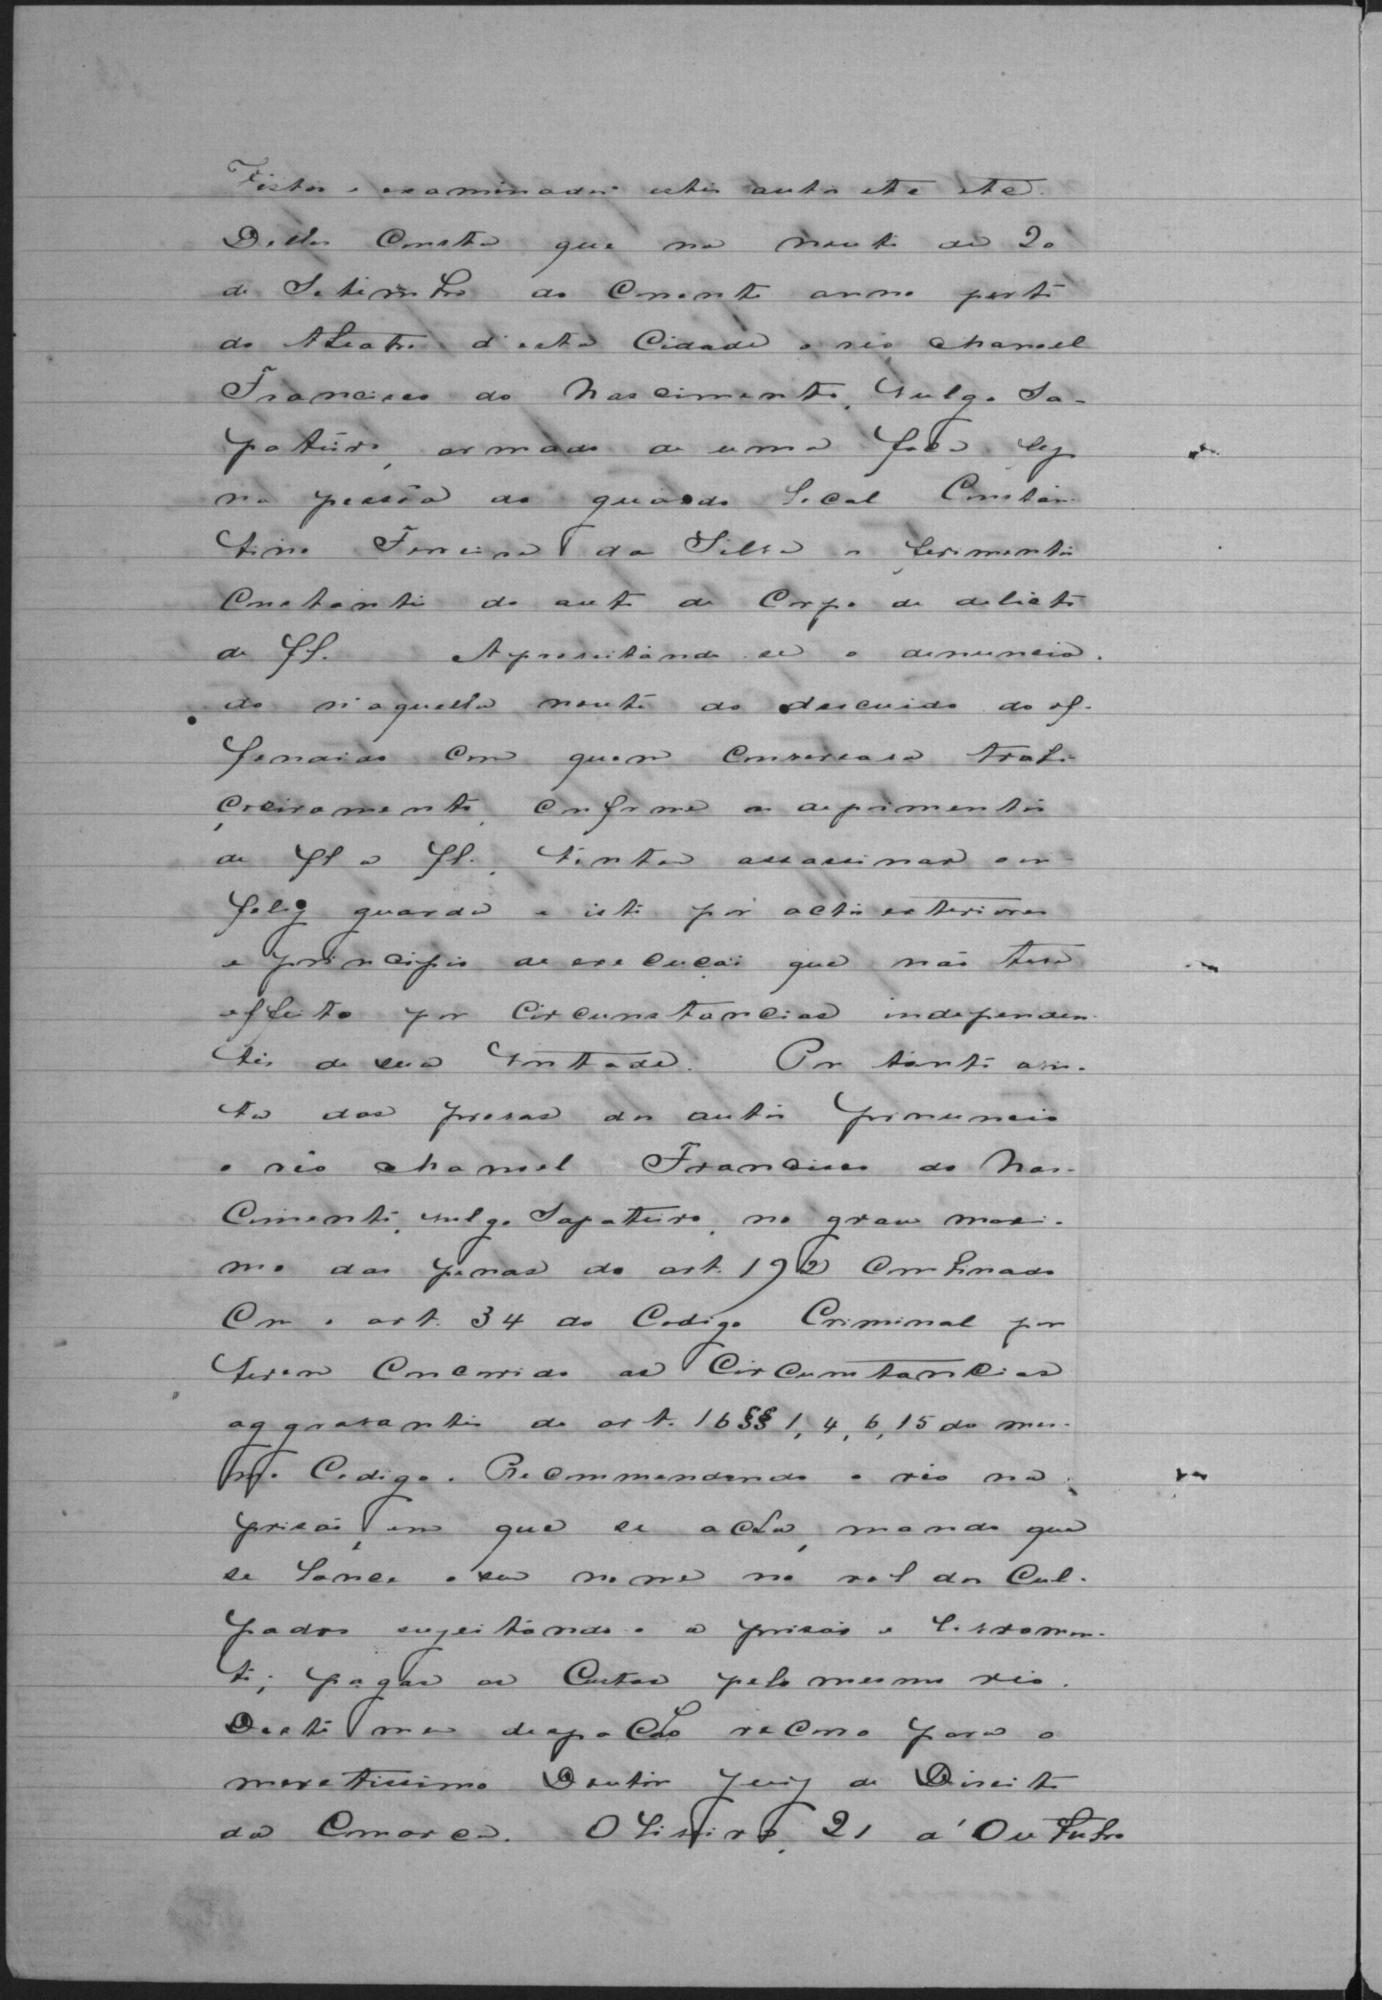 Vistos e examinados estes autos etc etc.
Delles consta que na noute de 20
de Setembro do corrente anno perto
do theatro d'esta cidade o réo Manoel
Francisco do Nascimento, vulgo Sa-
pateiro, armado de uma faca fez
na pessôa do guarda local Constan-
tino Ferreira da Silva os ferimentos
constantes do auto de corpo de delicto
de fl. Aproveitando-se o denuncia-
do n'aquella noute do descuido do of-
fendido com quem conversava trahi-
çoeiramente, conforme os depoimentos
de fl a fl., tentou assassinar o in-
feliz guarda e isto por actos exteriores
e principio de execução que não teve
effeito por circunstancias independen-
tes de sua vontade. Por tanto avis-
ta das provas dos autos pronuncio
o réo Manoel Francisco do Nas-
cimento, vulgo Sapateiro, no grau maxi-
mo das penas do art. 192 combinado
com o art. 34 do Codigo Criminal por
terem concorrido as circumstancias
aggravantes do art. 16 §§ 1, 4, 6, 15 do mes-
mo Codigo. Recommendando o réo na
prisão, em que se acha, mando que
se lance o seu nome no rol dos cul-
pados sujeitando-o a prisão e livramen-
to; pagas as custas pelo mesmo réo.
Deste meu despacho recorro para o
meretissimo Doutor Juiz de Direito
da Comarca. Oliveira, 21 d'Outubro